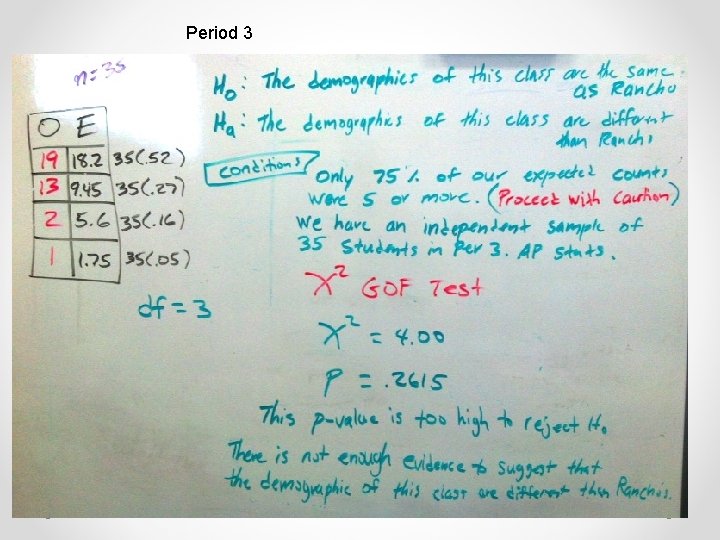 Period 3
n=35
H₀: The demographics of this class are the same
as Rancho
Hₐ: The demographics of this class are different
than Rancho
O E
19 18.2 35(.52)
13 9.45 35(.27)
2 5.6 35(.16)
1 1.75 35(.05)
df = 3
Conditions
Only 75% of our expected counts
were 5 or more. (Proceed with Caution)
We have an independent sample of
35 Students in Per 3. AP Stats.
X² GOF Test
X² = 4.00
P = .2615
This p-value is too high to reject H₀
There is not enough evidence to suggest that
the demographic of this class are different then Rancho's.